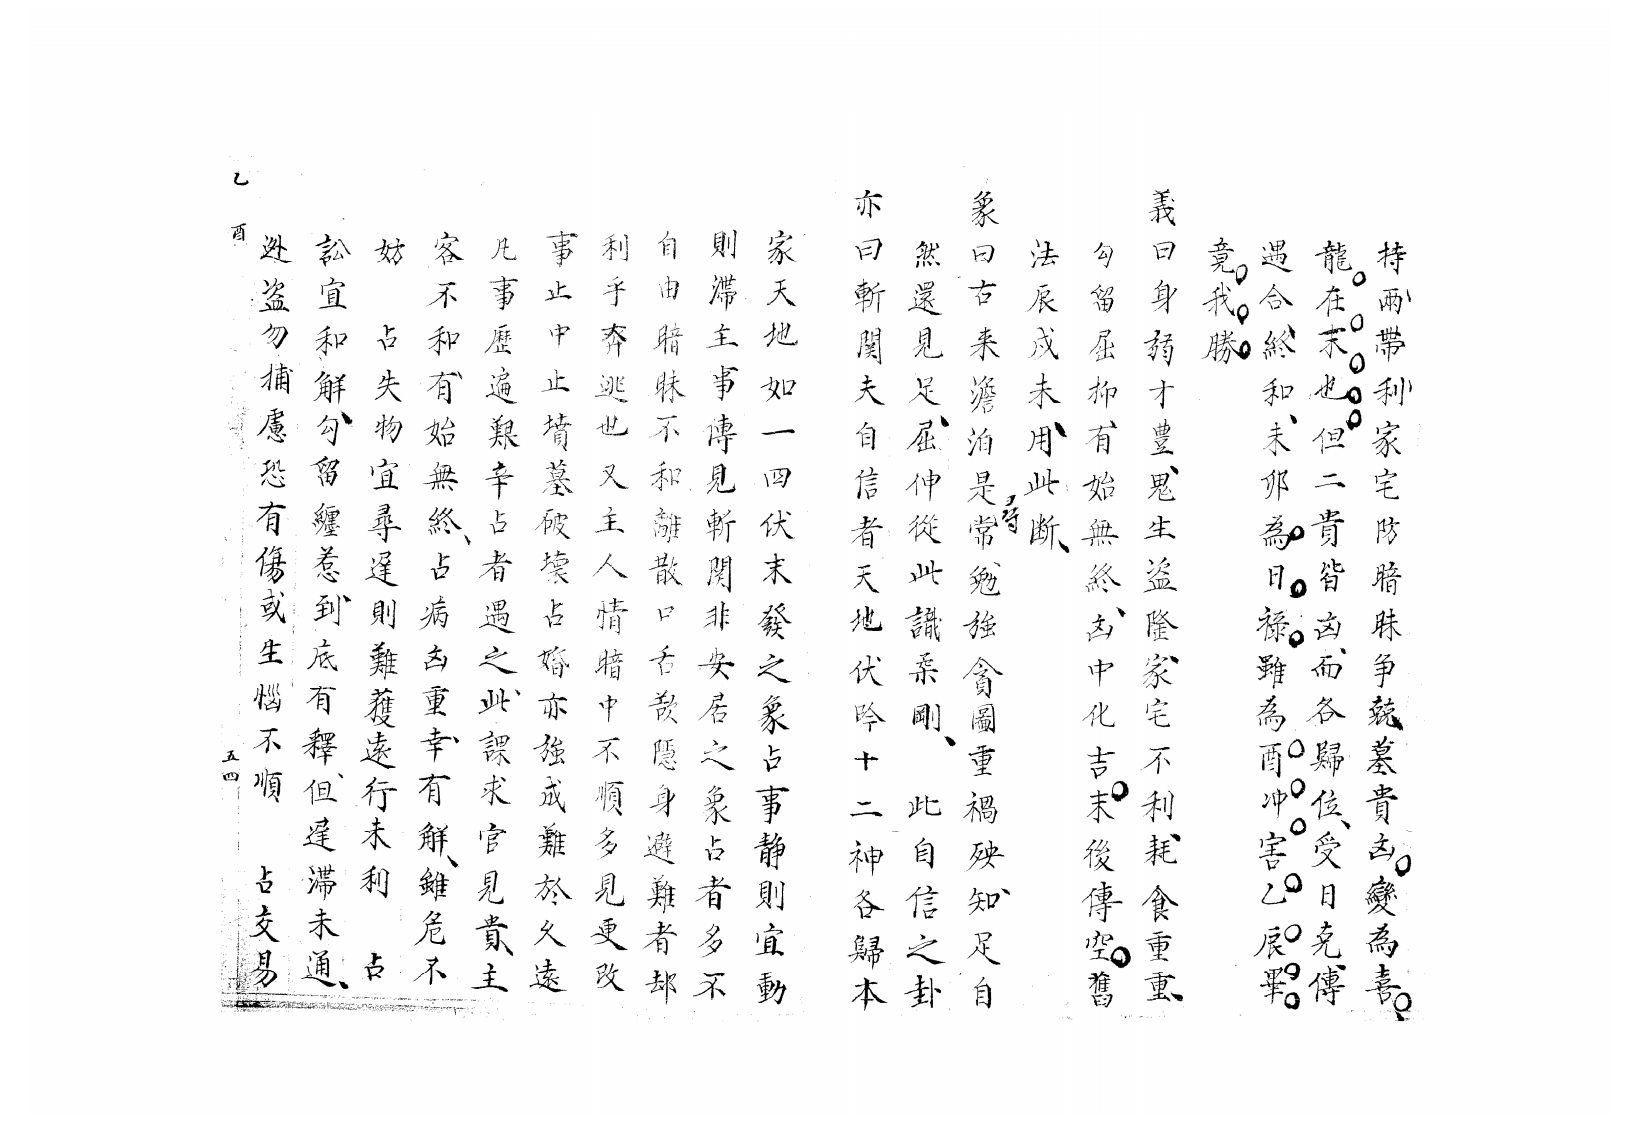 持兩帶利家宅防暗昧争競墓貴凶變為喜
龍在末也但二貴皆凶而各歸位受日克傳
遇合終和未卯為日祿雖為酉冲害乙辰畢
竟我勝
義曰身弱才豊鬼生盜隆家宅不利耗食重重
勾留屈抑有始無終凶中化吉末後傳空舊
法辰戌未用此断
象曰古来澹泊是尋常勉強貪圖重禍殃知足自
然還見足屈伸從此識柔剛 此自信之卦
亦曰斬関夫自信者天地伏吟十二神各歸本
家天地如一四伏末發之象占事静則宜動
則滯主事傳見斬関非安居之象占者多不
自由暗昧不和離散口舌欷隱身避難者却
利乎奔逃也又主人情暗中不順多見更改
事止中止墳墓破壞占婚亦強成難於久遠
凡事歷遍艱辛占者遇之此課求官見貴主
客不和有始無終占病凶重幸有解雖危不
妨 占失物宜尋遲則難獲遠行未利 占
訟宜和解勾留纏惹到底有釋但遲滯未通
逃盜勿捕慮恐有傷或生惱不順 占交易
乙酉 五四